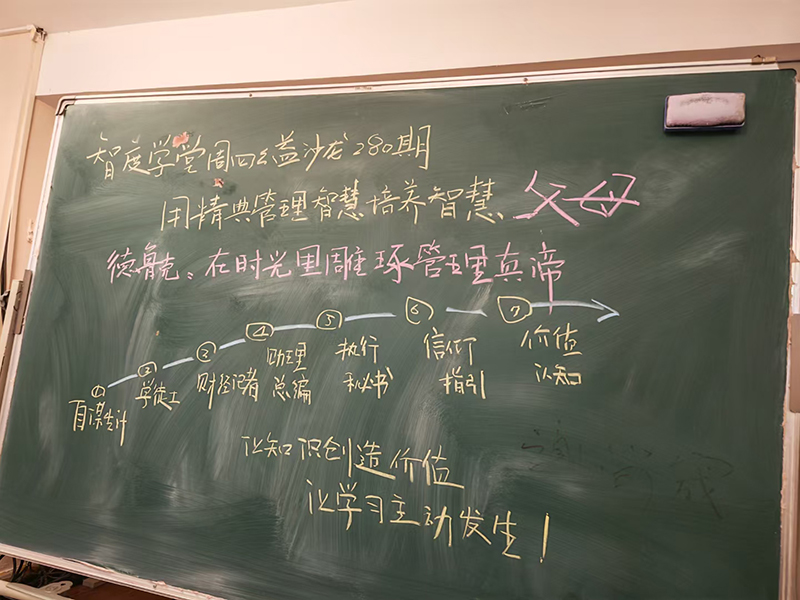 智度学堂周四公益沙龙280期
用精典管理智慧培养智慧父母
德鲁克:在时光里雕琢管理真谛
① ② ③ ④ ⑤ ⑥ ⑦
自谋生计 学徒工 财经记者 助理总编 执行秘书 信仰指引 价值认知
让知识创造价值
让学习主动发生!